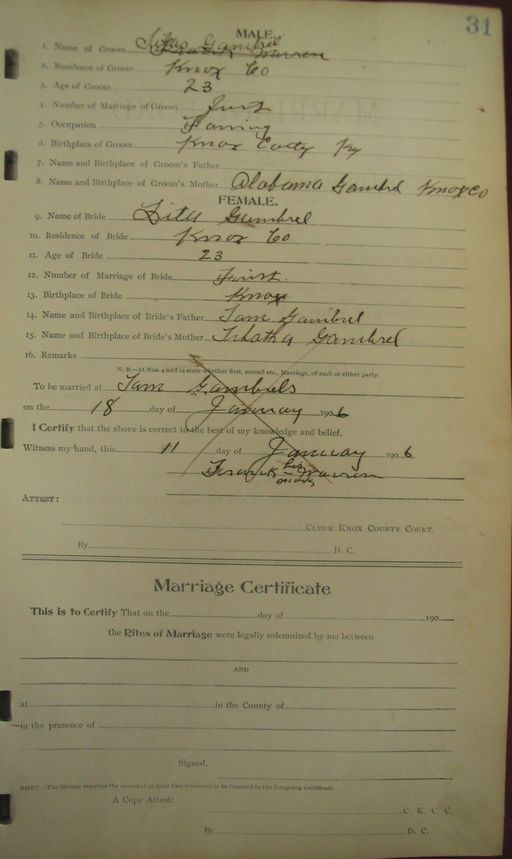 31
MALE.
1. Name of Groom Gambrel Warren
2. Residence of Groom Knox Co
3. Age of Groom 23
4. Number of Marriage of Groom first
5. Occupation Farming
6. Birthplace of Groom Knox Ky
7. Name and Birthplace of Groom's Father
8. Name and Birthplace of Groom's Mother Alabama Gambrel Knox Co
FEMALE.
9. Name of Bride Gambrel
10. Residence of Bride Knox Co
11. Age of Bride 23
12. Number of Marriage of Bride First.
13. Birthplace of Bride Knox
14. Name and Birthplace of Bride's Father Gambrel
15. Name and Birthplace of Bride's Mother Gambrel
16. Remarks
N. B.—At Nos. 4 and 12 state whether first, second etc., Marriage, of each or either party.
To be married at Gambrels
on the 18 day of January 1906
I Certify that the above is correct to the best of my knowledge and belief.
Witness my hand, this 11 day of January 1906
his
Warren
mark
ATTEST:
CLERK KNOX COUNTY COURT.
By D. C.
Marriage Certificate
This is to Certify That on the day of 190
the Rites of Marriage were legally solemnized by me between
AND
at in the County of
in the presence of
Signed,
NOTE.—The Statute requires the names of at least two witnesses to be inserted in the foregoing Certificate
A Copy Attest:
C. K. C. C.
By D. C.